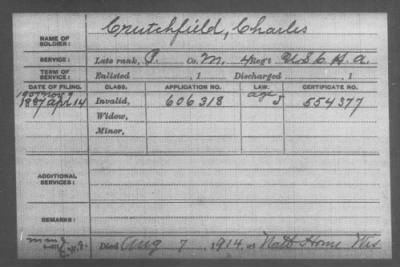 NAME OF SOLDIER: Crutchfield, Charles
SERVICE: Late rank, P. Co. M, 4 Reg't U.S.C.H.A.
TERM OF SERVICE: Enlisted , 1 Discharged , 1
DATE OF FILING. CLASS. APPLICATION NO. LAW. CERTIFICATE NO.
1907 Nov 9 age
1887 Apl 14 Invalid, 606318 J 554377
Widow,
Minor,
ADDITIONAL SERVICES:
REMARKS:
C.W.F. Died Aug 7, 1914, at Natl Home Wis